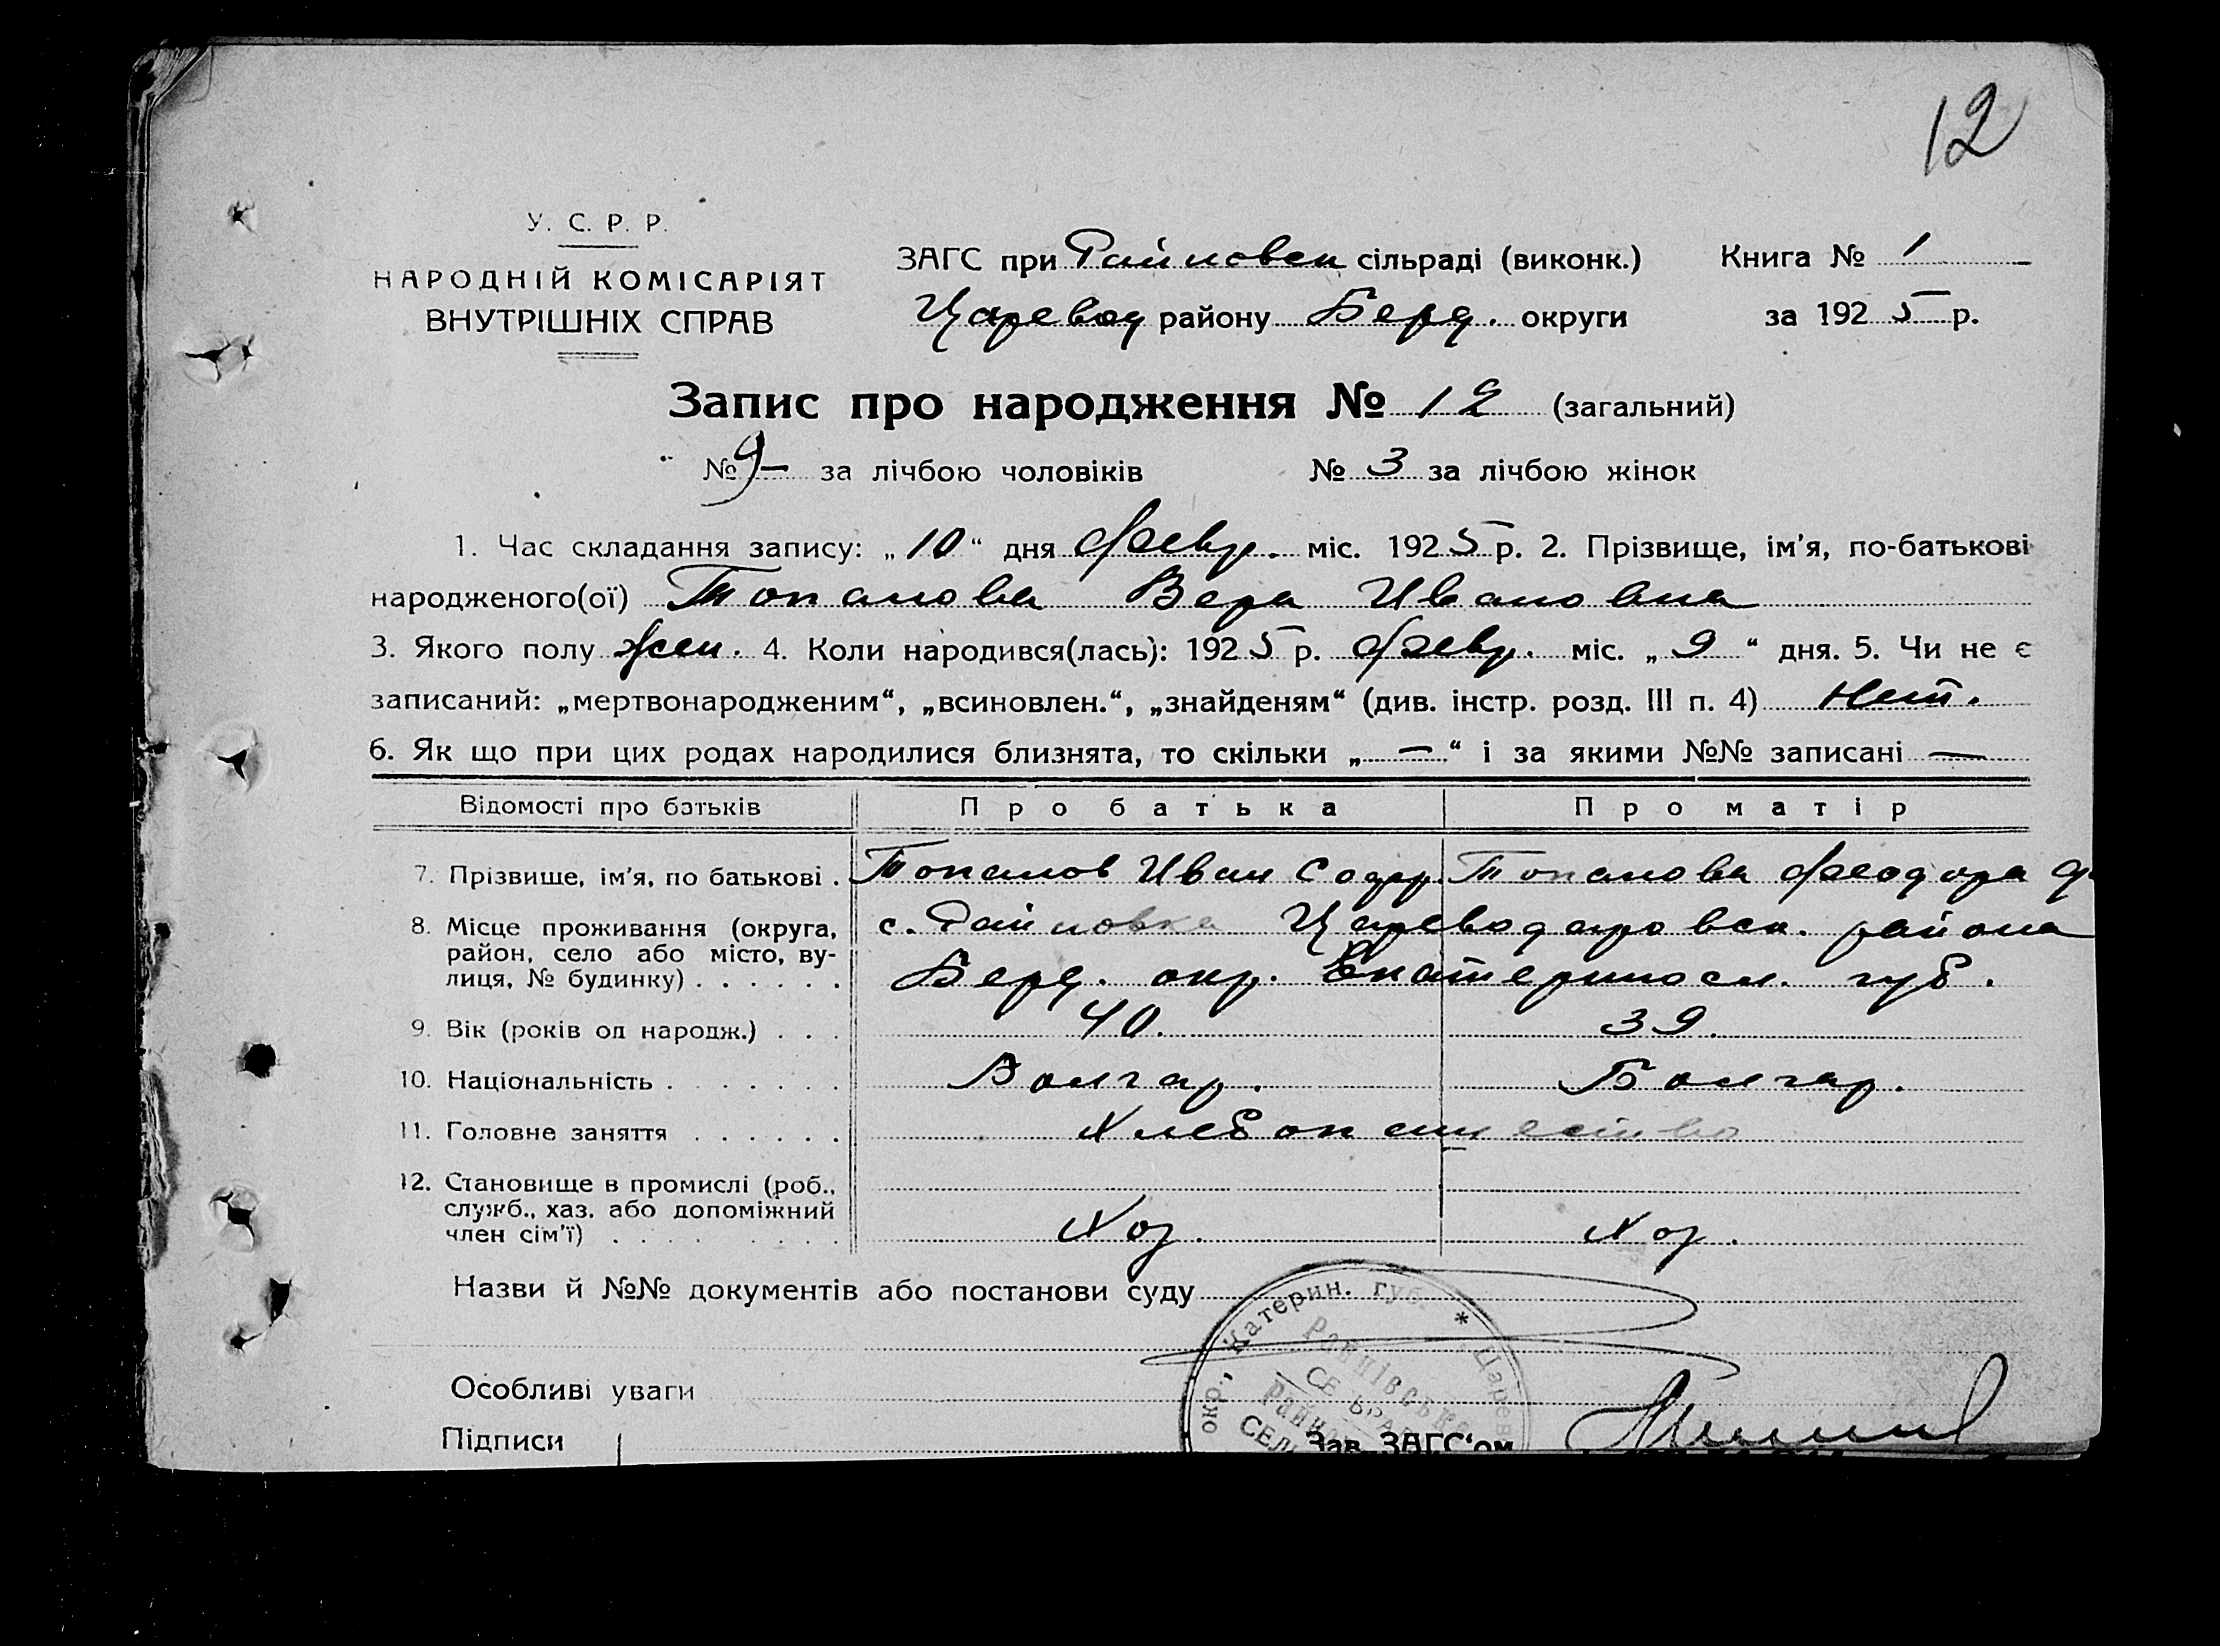 12
У. С. Р. Р.
НАРОДНІЙ КОМІСАРІЯТ
ВНУТРІШНІХ СПРАВ
ЗАГС при Райновск сільраді (виконк.) Книга № 1
Царевод району Берд. округи за 1925 р.
Запис про народження № 12 (загальний)
№ 9 — за лічбою чоловіків № 3 за лічбою жінок
1. Час складання запису: „10“ дня февр. міс. 1925 р. 2. Прізвище, ім’я, по-батькові
народженого(ої) Топалова Вера Ивановна
3. Якого полу жен. 4. Коли народився(лась): 1925 р. февр. міс. „9“ дня. 5. Чи не є
записаний: „мертвонародженим“, „всиновлен.“, „знайденям“ (див. інстр. розд. III п. 4) Нет.
6. Як що при цих родах народилися близнята, то скільки „—“ і за якими №№ записані —
Відомості про батьків Про батька Про матір
7. Прізвище, ім’я, по батькові . Топалов Иван Топалова Феодора
8. Місце проживання (округа, с. Райновка Цареводаровск. района
район, село або місто, ву-
лиця, № будинку) . . . . . . Берд. окр. Екатериносл. губ.
9. Вік (років од народж.) . . . 40. 39.
10. Національність . . . . . . . Болгар. Болгар.
11. Головне заняття . . . . . . Хлебопашество
12. Становище в промислі (роб.,
служб., хаз. або допоміжний
член сім’ї) . . . . . . . . Хоз. Хоз.
Назви й №№ документів або постанови суду
окр., Катерин. губ. * Царев
СЕЛ
Особливі уваги
Підписи Зав. ЗАГС‘ом